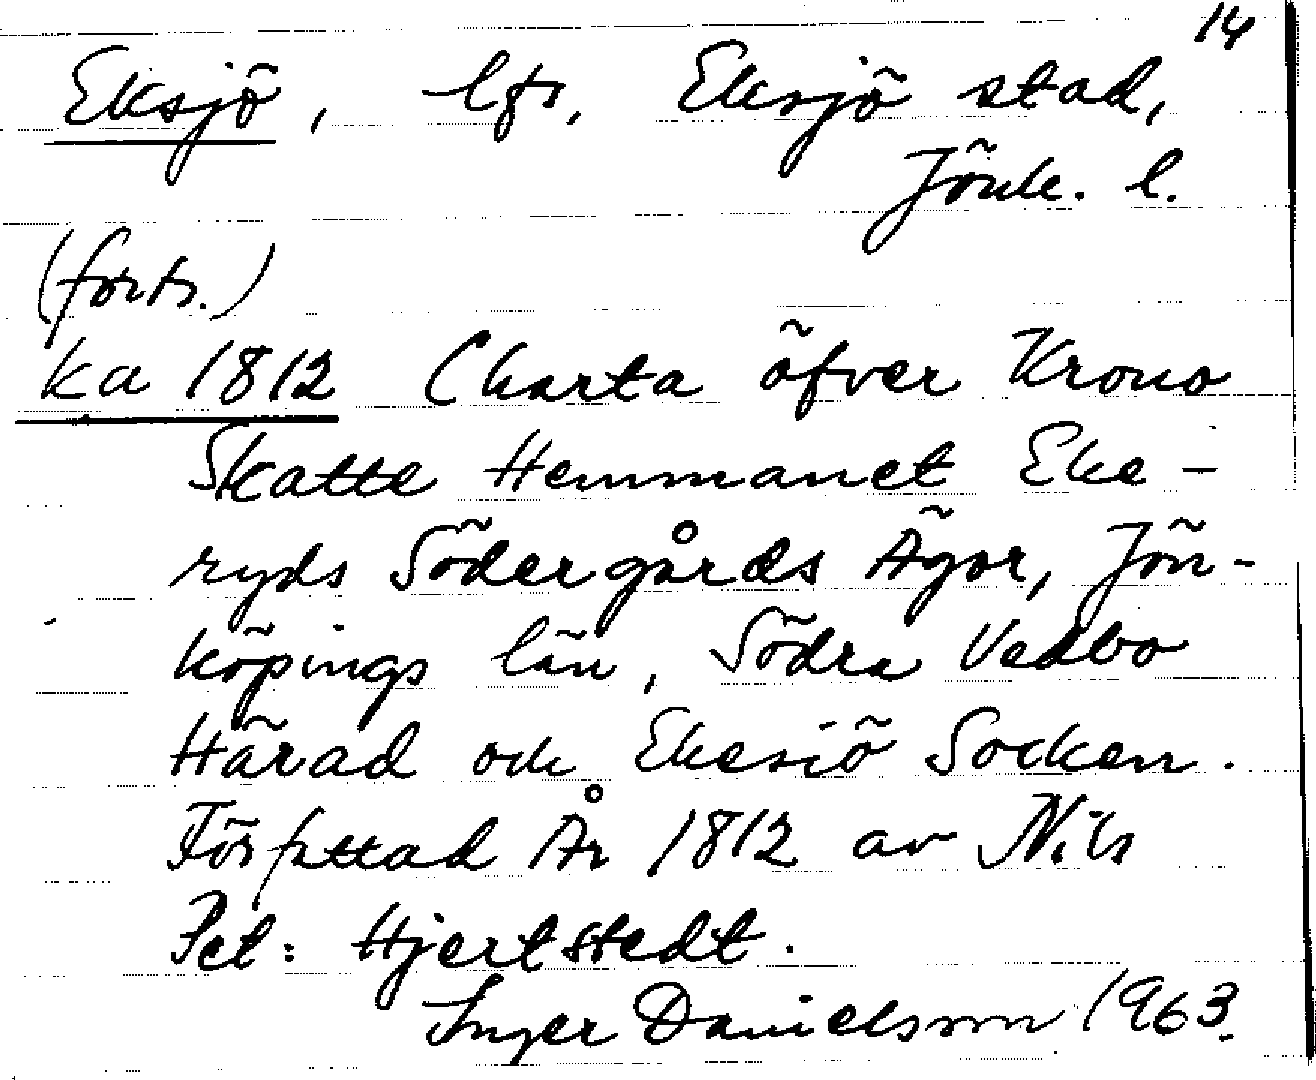 14
Eksjö, lfs, Eksjö stad,
Jönk. l.
(forts.)
ka 1812 Charta öfver Krono
Skatte Hemmanet Eke-
ryds Södergårds Ägor, Jön-
köpings län, Södra Vedbo
Härad och Ekesiö Socken.
Författad År 1812 av Nils
Pet: Hjertstedt.
Inger Danielsson 1963.